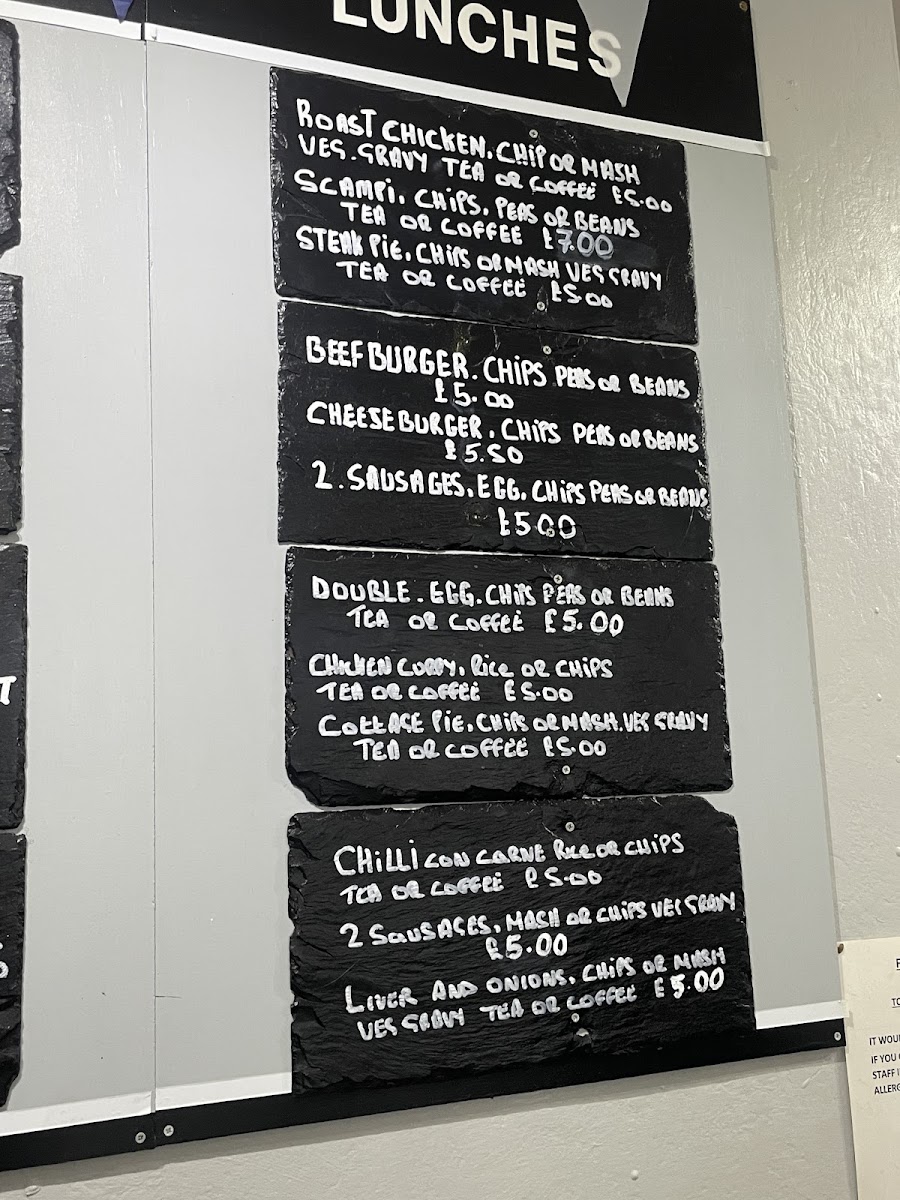 LUNCHES
ROAST CHICKEN. CHIP OR MASH
VEG. GRAVY TEA OR COFFEE £5.00
SCAMPI. CHIPS. PEAS OR BEANS
TEA OR COFFEE £7.00
STEAK PIE. CHIPS OR MASH VEG GRAVY
TEA OR COFFEE £5.00
BEEFBURGER. CHIPS PEAS OR BEANS
£5.00
CHEESEBURGER. CHIPS PEAS OR BEANS
£5.50
2. SAUSAGES. EGG. CHIPS PEAS OR BEANS
£5.00
DOUBLE. EGG. CHIPS PEAS OR BEANS
TEA OR COFFEE £5.00
CHICKEN CURRY. RICE OR CHIPS
TEA OR COFFEE £5.00
COTTAGE PIE. CHIPS OR MASH. VEG GRAVY
TEA OR COFFEE £5.00
CHILLI CON CARNE RICE OR CHIPS
TEA OR COFFEE £5.00
2 SAUSAGES. MASH OR CHIPS VEG GRAVY
£5.00
LIVER AND ONIONS. CHIPS OR MASH
VEG GRAVY TEA OR COFFEE £5.00
IF YOU
STAFF